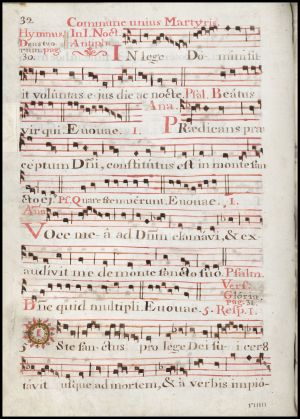 32. Commune unius Martyris.
Hymnus In I. Noct.
Deus tuo Antiph.
rum, pag.
30. IN lege Domini fu-
it voluntas ejus die ac nocte. Psal. Beatus
Ana.
vir qui. Euouae. 1. Prædicans præ
ceptum Dñi, constitutus est in monte san
cto ej. Ps. Quare fremuerunt. Euouae. 1.
Ana.
Voce meâ ad Dñm clamavi, & ex-
audivit me de monte sancto suo. Psalm.
Vers.
Gloria.
pag. 31.
Dñe quid multipli. Euouae. 5. Resp. 1.
Iste sanctus pro lege Dei sui cer
távit usque ad mortem, & à verbis impió-
rum